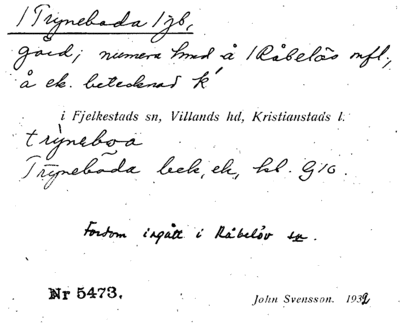 1 Tryneboda 1 gb,
gård; numera hmd å 1 Råbelös mfl.,
å ek. betecknad k
i Fjelkestads sn, Villands hd, Kristianstads l.
tryneboa
Tryneboda bek, ek, bl. G10.
Fordom ingått i Råbelöv sn.
Nr 5473.
John Svensson. 1932